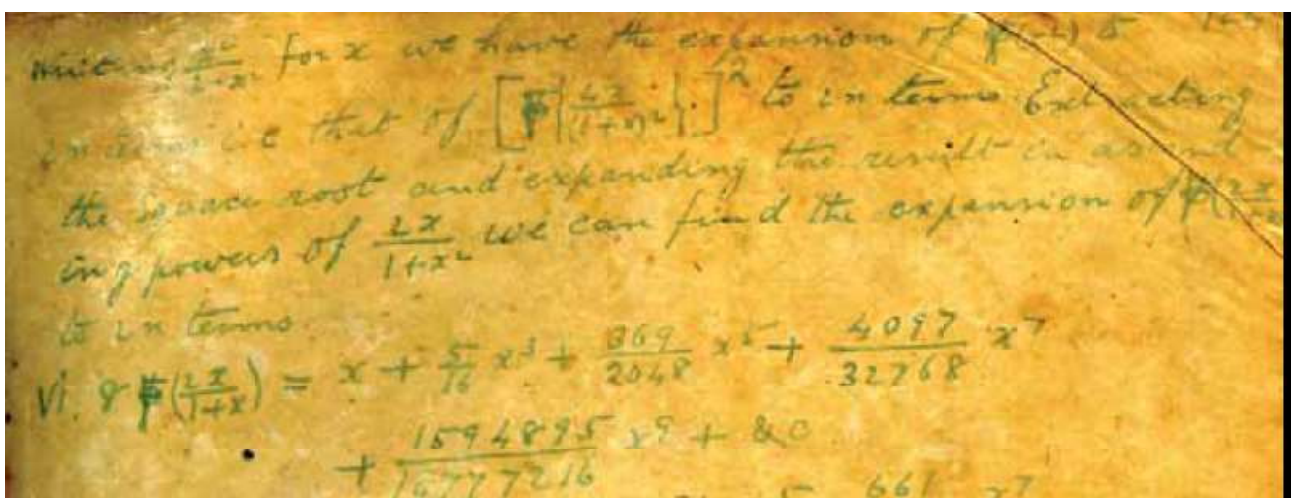 writing x²/(1+x)² for x we have the expansion of F(x) to
in terms i.e that of [F{4x/(1+x)²}]² to 2n terms. Extracting
the square root and expanding the result in ascend
ing powers of 2x/(1+x²) we can find the expansion of F(2x/(1+x
to 2n terms.
vi. 8 F(2x/(1+x)) = x + 5/16 x³ + 369/2048 x⁵ + 4097/32768 x⁷
+ 1594895/16777216 x⁹ + &c
661 x⁷